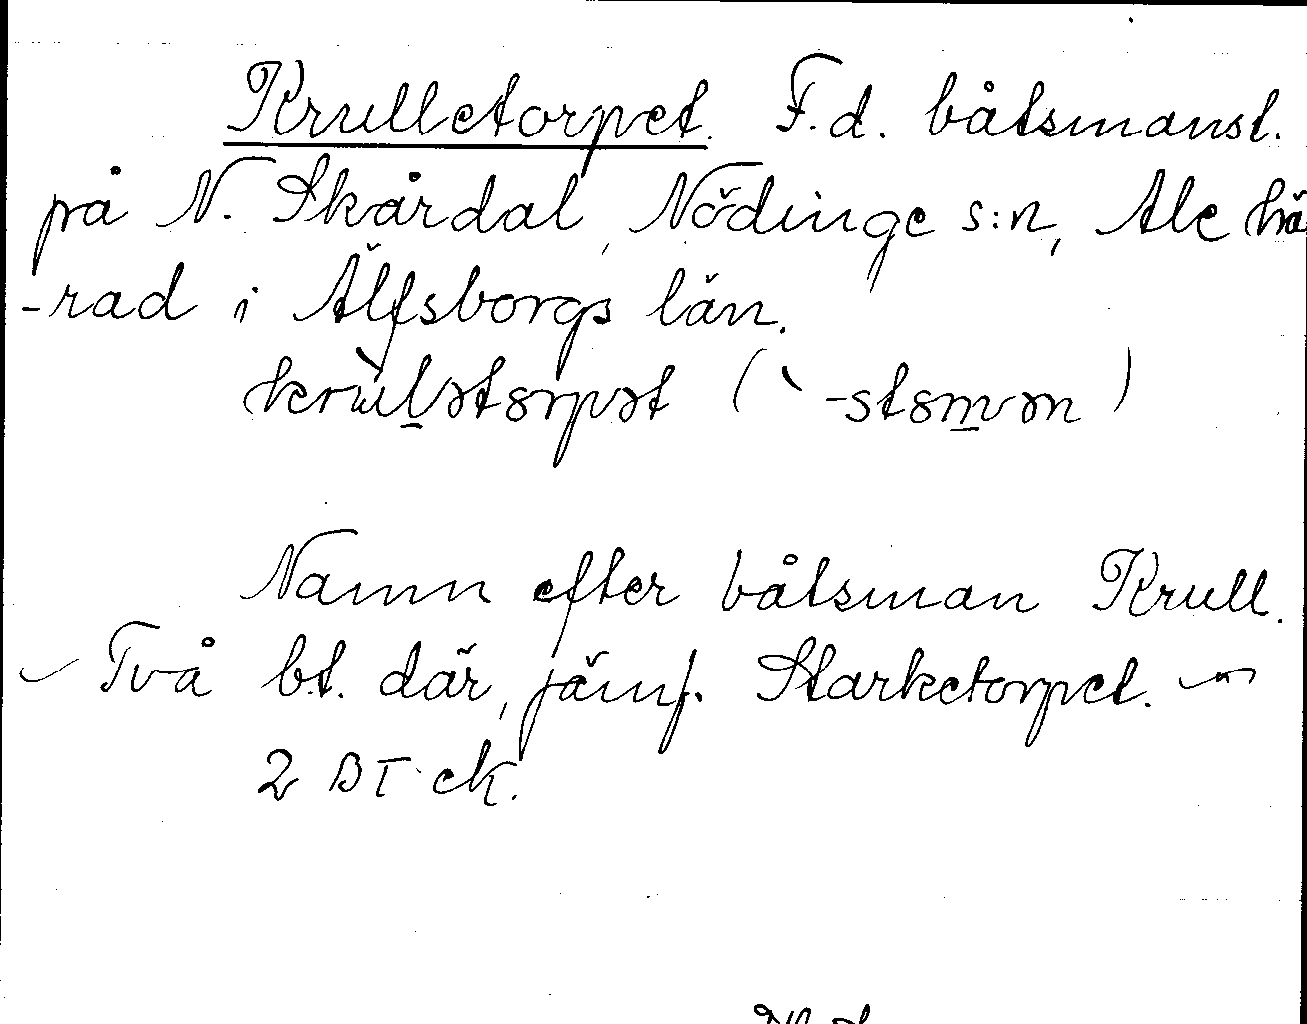 Krulletorpet. F.d. båtsmanst.
på N. Skårdal, Nödinge s:n, Ale hä
-rad i Älfsborgs län.
Namn efter båtsman Krull.
Två bt. där, jämf. Starketorpet.
2 BT ek.